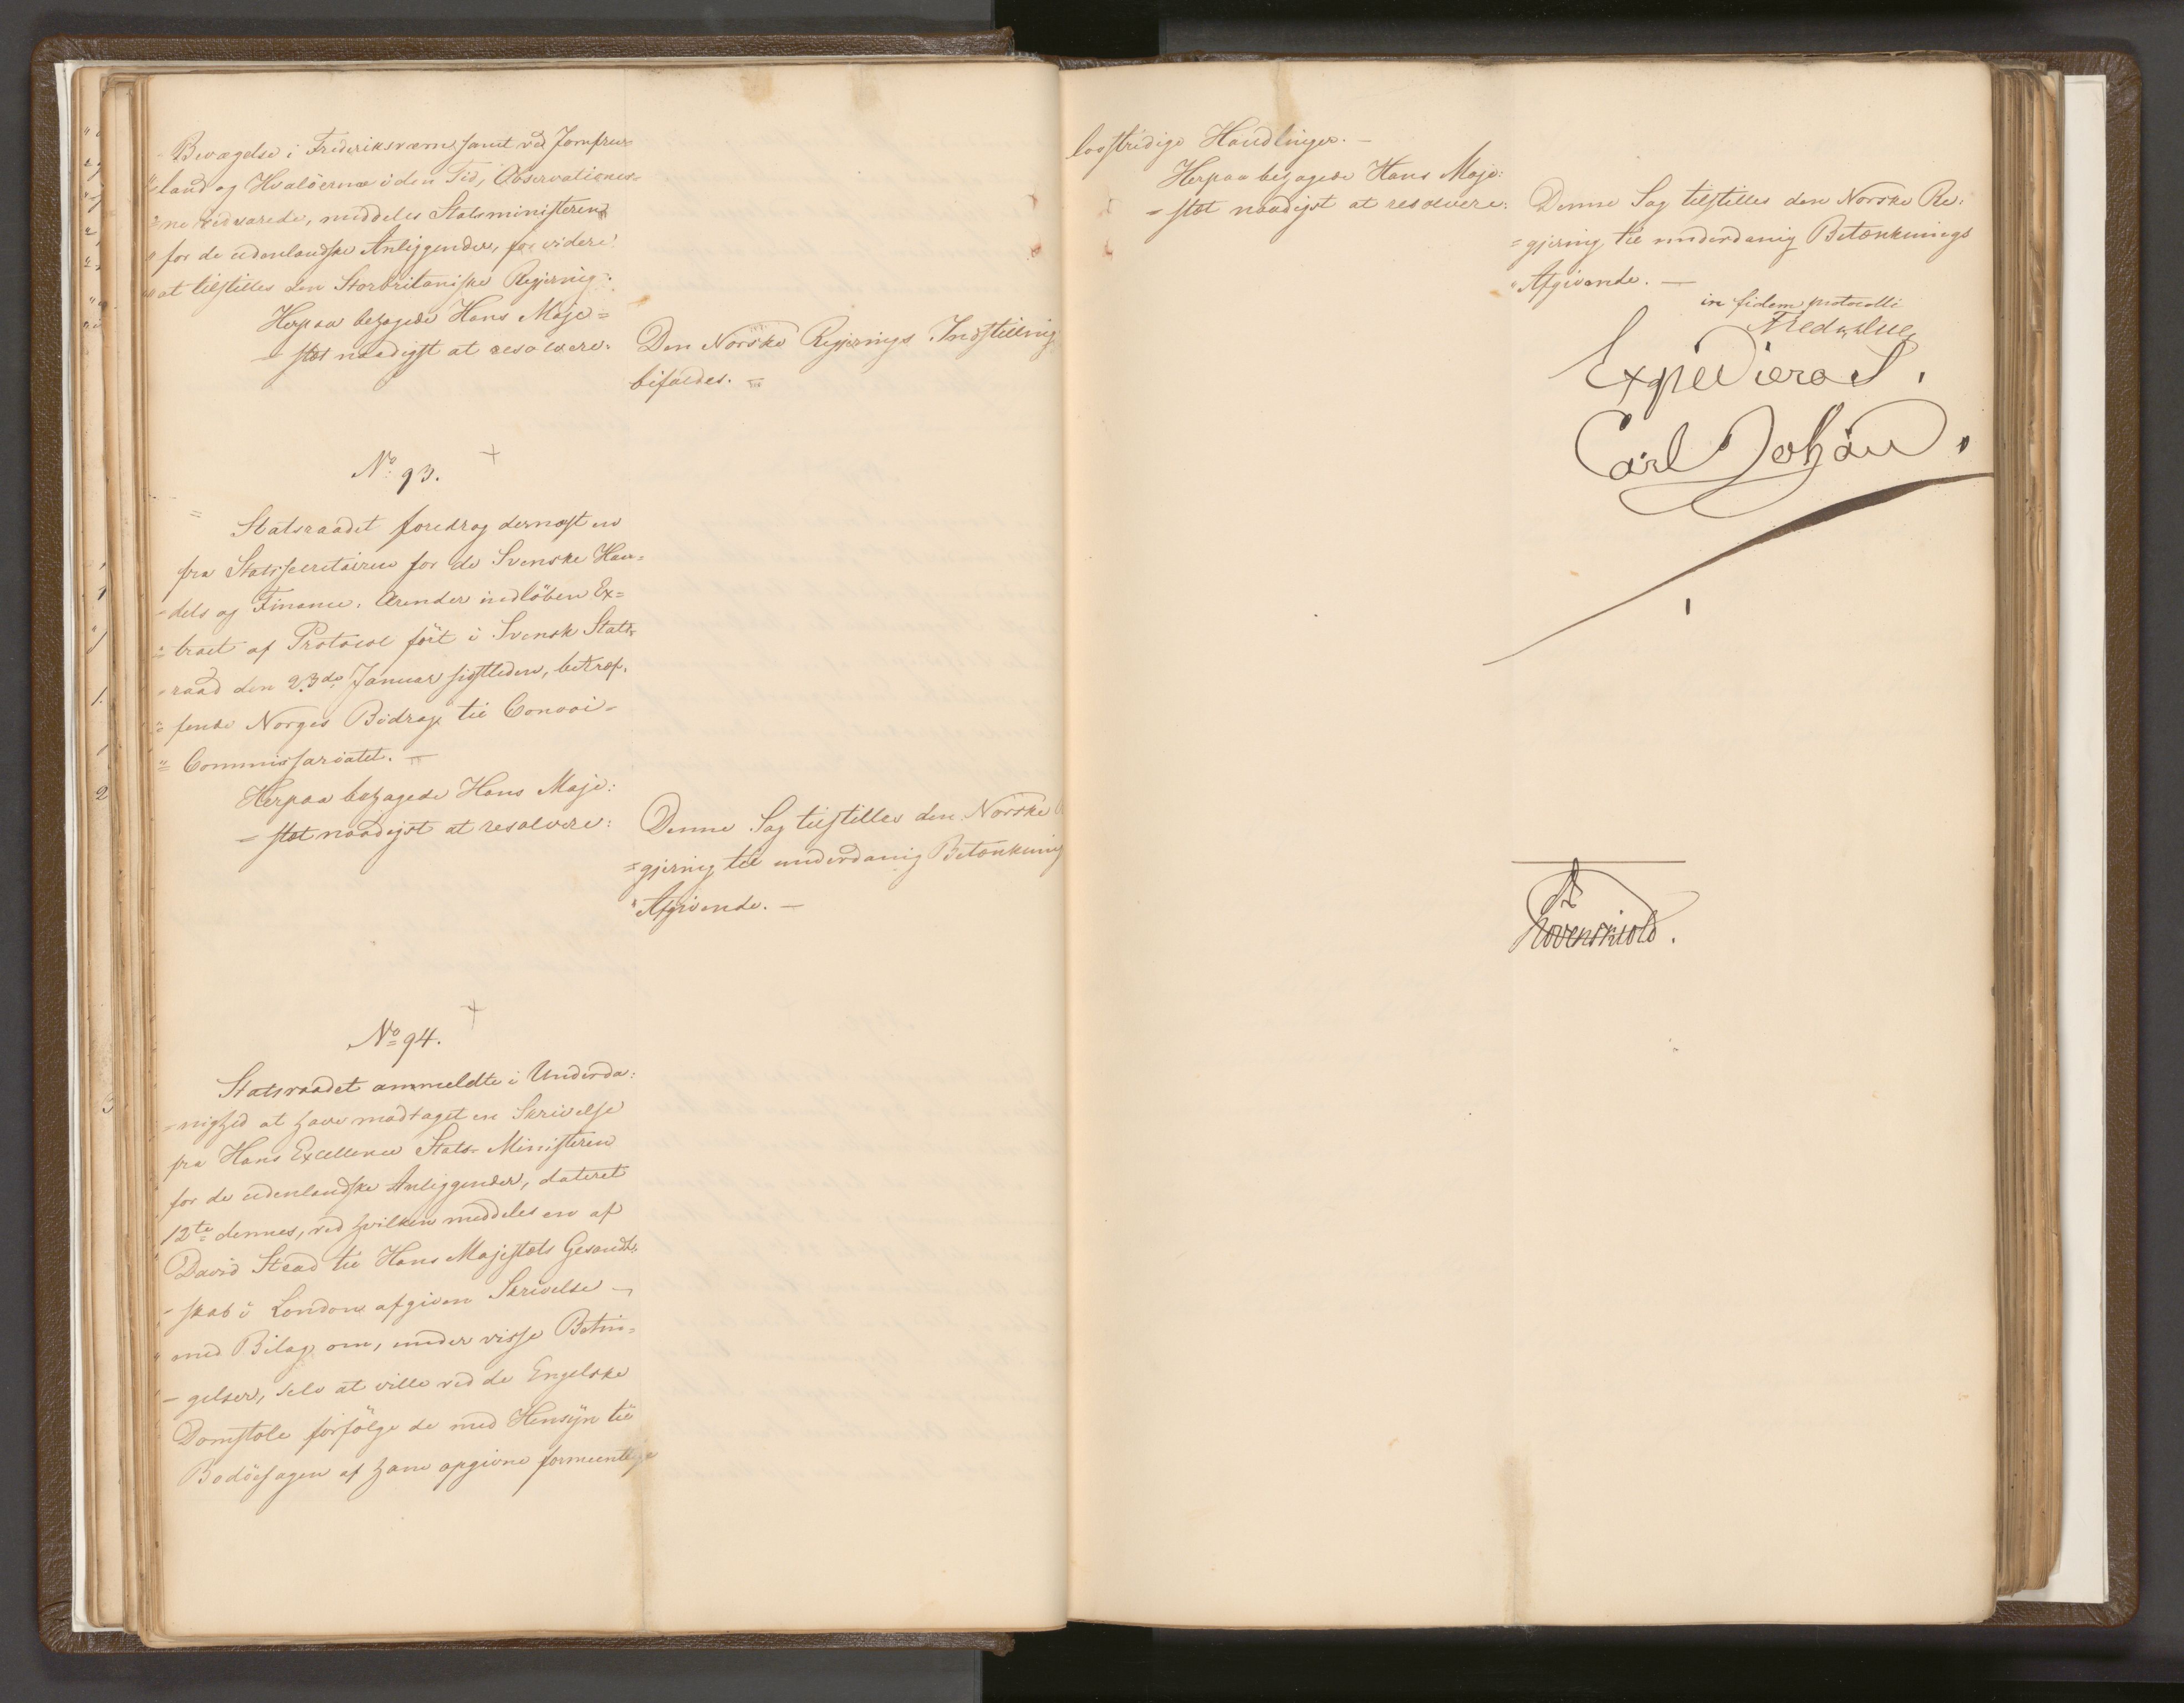 Bevægelse i Frideriksværn samt ved Jomfrue
land og Hvalöerne i den Tid, Observationer=
=ne vedvarede, meddeles Statsministeren
for de udenlandske Anliggender, for videre
at tilstilles den Storbritaniske Regjering.
Herpaa behagede Hans Maje=
=stæt naadigst at resolvere:
Den Norske Regjerings Indstilling
bifaldes. –
No 93.
Statsraadet foredrog dernæst en
fra Statssecretairen for de Svenske Han=
=dels og Finance. Ærender indlöben Ex=
=tract af Protocol fört i Svensk Stats=
=raad den 23de Januar sidstleden, betræf=
=fende Norges Bidrag til Convoi=
=Commissariatet. –
Herpaa behagede Hans Maje:
=stæt naadigst at resolvere:
Denne Sag tilstilles den Norske
=gjering til underdanig Betænknings
Afgivende. –
No 94.
Statsraadet anmeldte i Underda:
=nighed at have modtaget en Skrivelse
fra Hans Excellence Stats-Ministeren
for de udenlandske Anliggender, dateret
12te dennes, ved hvilken meddeles en af
David Stead til Hans Majestæts Gesandt=
=skab i London afgiven Skrivelse –
med Bilag om, under visse Betin=
=gelser, selv at ville ved de Engelske
Domstole forfölge de med Hensyn til
Bodöesagen af ham opgivne formeentlige
lovstridige Handlinger. –
Herpaa behagede Hans Maje:
=stæt naadigst at resolvere:
Denne Sag tilstilles den Norske Re:
=gjering til underdanig Betænknings
Afgivende. –
in fidem protocolli
Expedieras.
Carl Johan.
Løvenskiold.